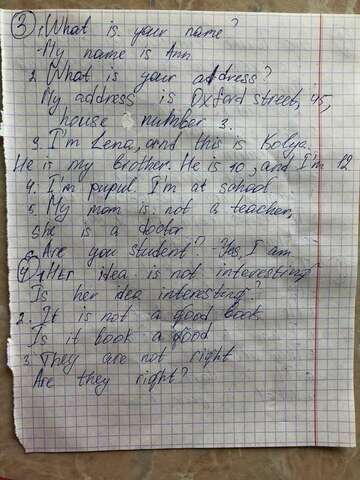 3 1. What is your name?
My name is Ann
2. What is your address?
My address is Oxford street, 45,
house number 3.
3. I'm Lena, and this is Kolya.
He is my brother. He is 10, and I'm 12
4. I'm pupil. I'm at school
5. My mom is not a teacher,
she is a doctor
6. Are you student? Yes, I am
4) 1. Her idea is not interesting
Is her idea interesting?
2. It is not a good book
Is it book a good
3. They are not right
Are they right?